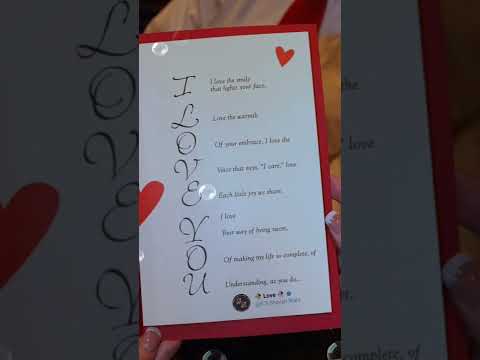 I
L
O
V
E
Y
O
U
I love the smile
that lights your face,
Love the warmth
Of your embrace, I love the
Voice that says, "I care," love
Each little joy we share,
I love
Your way of being sweet,
Of making my life so complete, of
Understanding, as you do...
Love